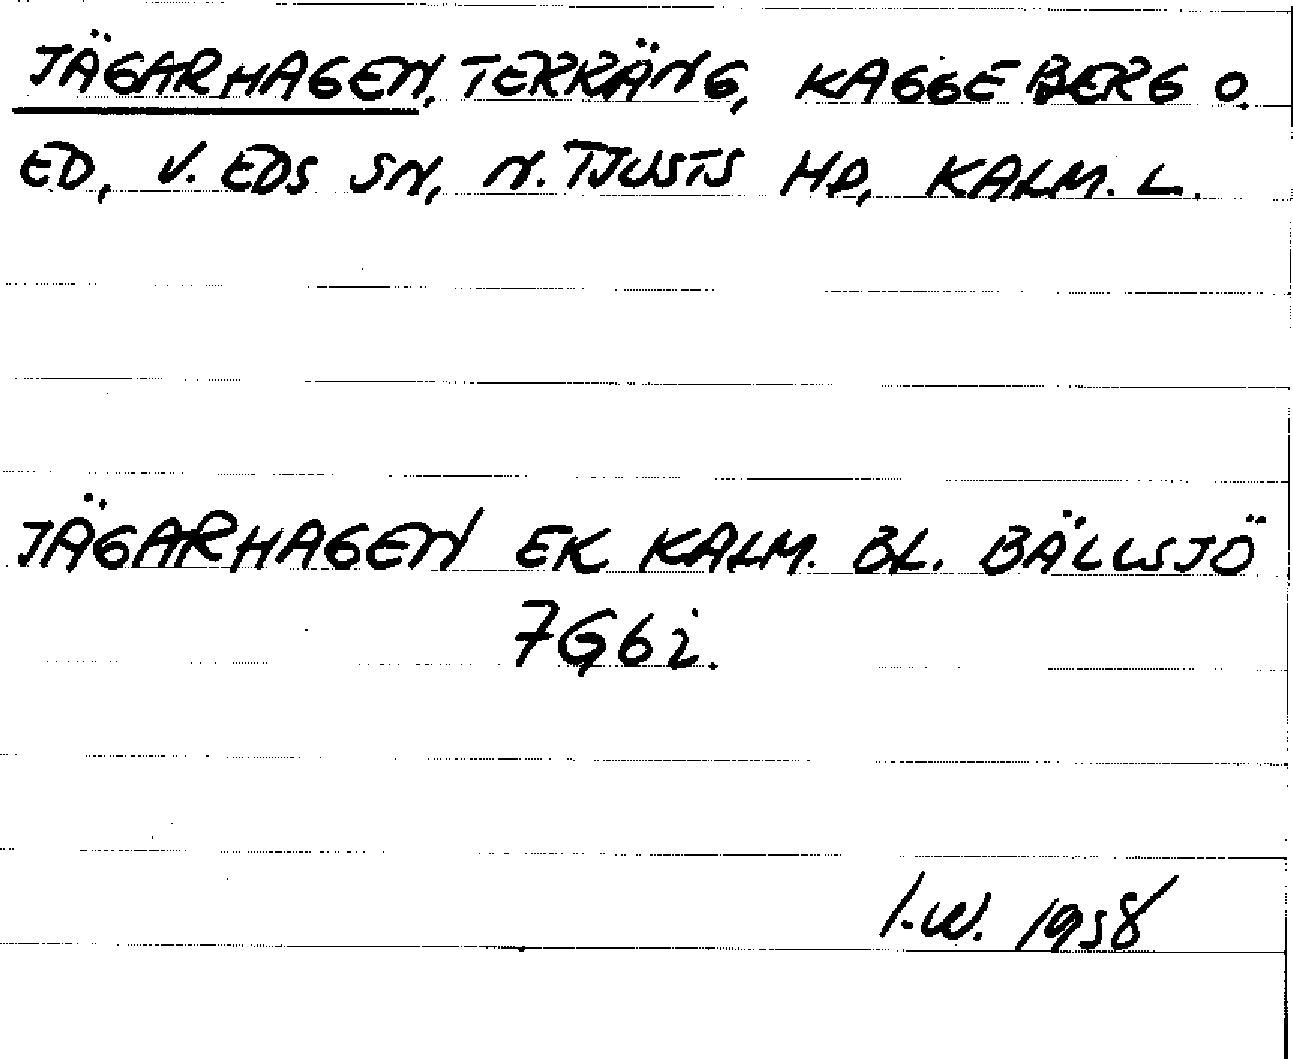 JÄGARHAGEN, TERRÄNG, KAGGEBERG O.
ED, V. EDS SN, N. TJUSTS HD, KALM. L.
JÄGARHAGEN EK KALM. BL. BÄLLSJÖ
7G6i.
I.W. 1958